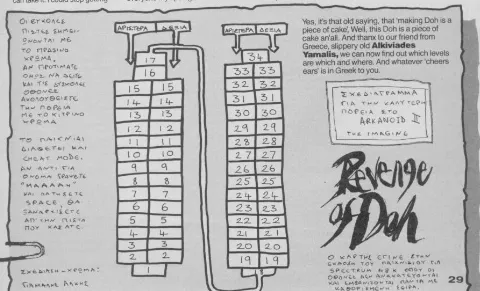 can take it. I could stop
ΟΙ ΕΥΚΟΛΕΣ
ΠΙΣΤΕΣ
ΜΕ
ΤΟ ΠΡΑΣΙΝΟ
ΧΡΩΜΑ,
ΑΝ ΠΡΟΤΙΜΑΤΕ
ΚΑΙ ΤΙΣ ΔΥΣΚΟΛΕΣ
ΟΘΟΝΕΣ
ΑΚΟΛΟΥΘΕΙΣΤΕ
ΤΗΝ ΠΟΡΕΙΑ
ΜΕ ΤΟ ΚΙΤΡΙΝΟ
ΧΡΩΜΑ
ΤΟ ΠΑΙΧΝΙΔΙ
ΔΙΑΘΕΤΕΙ ΚΑΙ
CHEAT MODE.
ΑΝ ΑΝΤΙ ΓΙΑ
ΟΝΟΜΑ ΓΡΑΨΕΤΕ
"MAAAAH"
ΚΑΙ ΠΑΤΗΣΕΤΕ
SPACE, ΘΑ
ΞΑΝΑΡΧΙΣΕΤΕ
ΑΠ' ΤΗΝ ΠΙΣΤΑ
ΠΟΥ ΧΑΣΑΤΕ.
ΣΧΕΔΙΑΣΗ - ΧΡΩΜΑ:
ΓΙΑΜΑΛΗΣ ΑΛΚΗΣ
ΑΡΙΣΤΕΡΑ ΔΕΞΙΑ
17
16
15 15
14 14
13 13
12 12
11 11
10 10
9 9
8 8
7 7
6 6
5 5
4 4
3 3
2 2
1
ΑΡΙΣΤΕΡΑ ΔΕΞΙΑ
34
33 33
32 32
31 31
30 30
29 29
28 28
27 27
26 26
25 25
24 24
23 23
22 22
21 21
20 20
19 19
Yes, it's that old saying, that 'making Doh is a
piece of cake', Well, this Doh is a piece of
cake an'all. And thanx to our friend from
Greece, slippery old Alkiviades
Yamalis, we can now find out which levels
are which and where. And whatever 'cheers
ears' is in Greek to you.
ΣΧΕΔΙΑΓΡΑΜΜΑ
ΓΙΑ ΤΗΝ ΚΑΛΥΤΕΡΗ
ΠΟΡΕΙΑ ΣΤΟ
ARKANOID II
THE IMAGINE
Revenge
of Doh
Ο ΧΑΡΤΗΣ ΕΓΙΝΕ ΣΤΗΝ
ΕΚΔΟΣΗ ΤΟΥ ΠΑΙΧΝΙΔΙΟΥ ΓΙΑ
SPECTRUM 48K ΟΠΟΥ ΟΙ
ΟΘΟΝΕΣ ΔΕΝ
ΚΑΙ ΕΜΦΑΝΙΖΟΝΤΑΙ ΠΑΝΤΑ ΜΕ
ΚΑΘΟΡΙΣΜΕΝΗ ΣΕΙΡΑ.
29